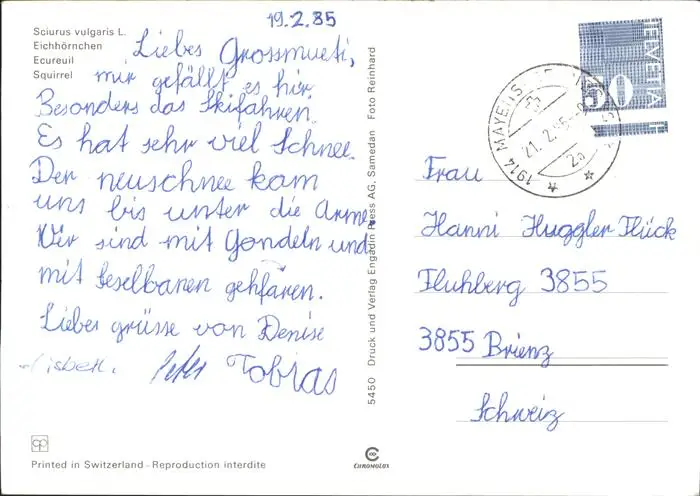 19.2.85
Sciurus vulgaris L.
Eichhörnchen
Ecureuil
Squirrel
Liebes Grossmueti,
mir gefällt es hir
Besonders das Skifahren.
Es hat sehr viel Schnee.
Der neuschnee kam
uns bis unter die Arme.
Wir sind mit Gondeln und
mit Seselbanen gehfaren.
Liebe grüsse von Denise
Lisbeth. Peter Tobias
Printed in Switzerland - Reproduction interdite
5450 Druck und Verlag Engadin Press AG, Samedan Foto Reinhard
CHROMOLUX
HELVETIA
50
1914 MAYENS
21.2.85
Frau
Hanni Huggler Flück
Fluhberg 3855
3855 Brienz
Schweiz